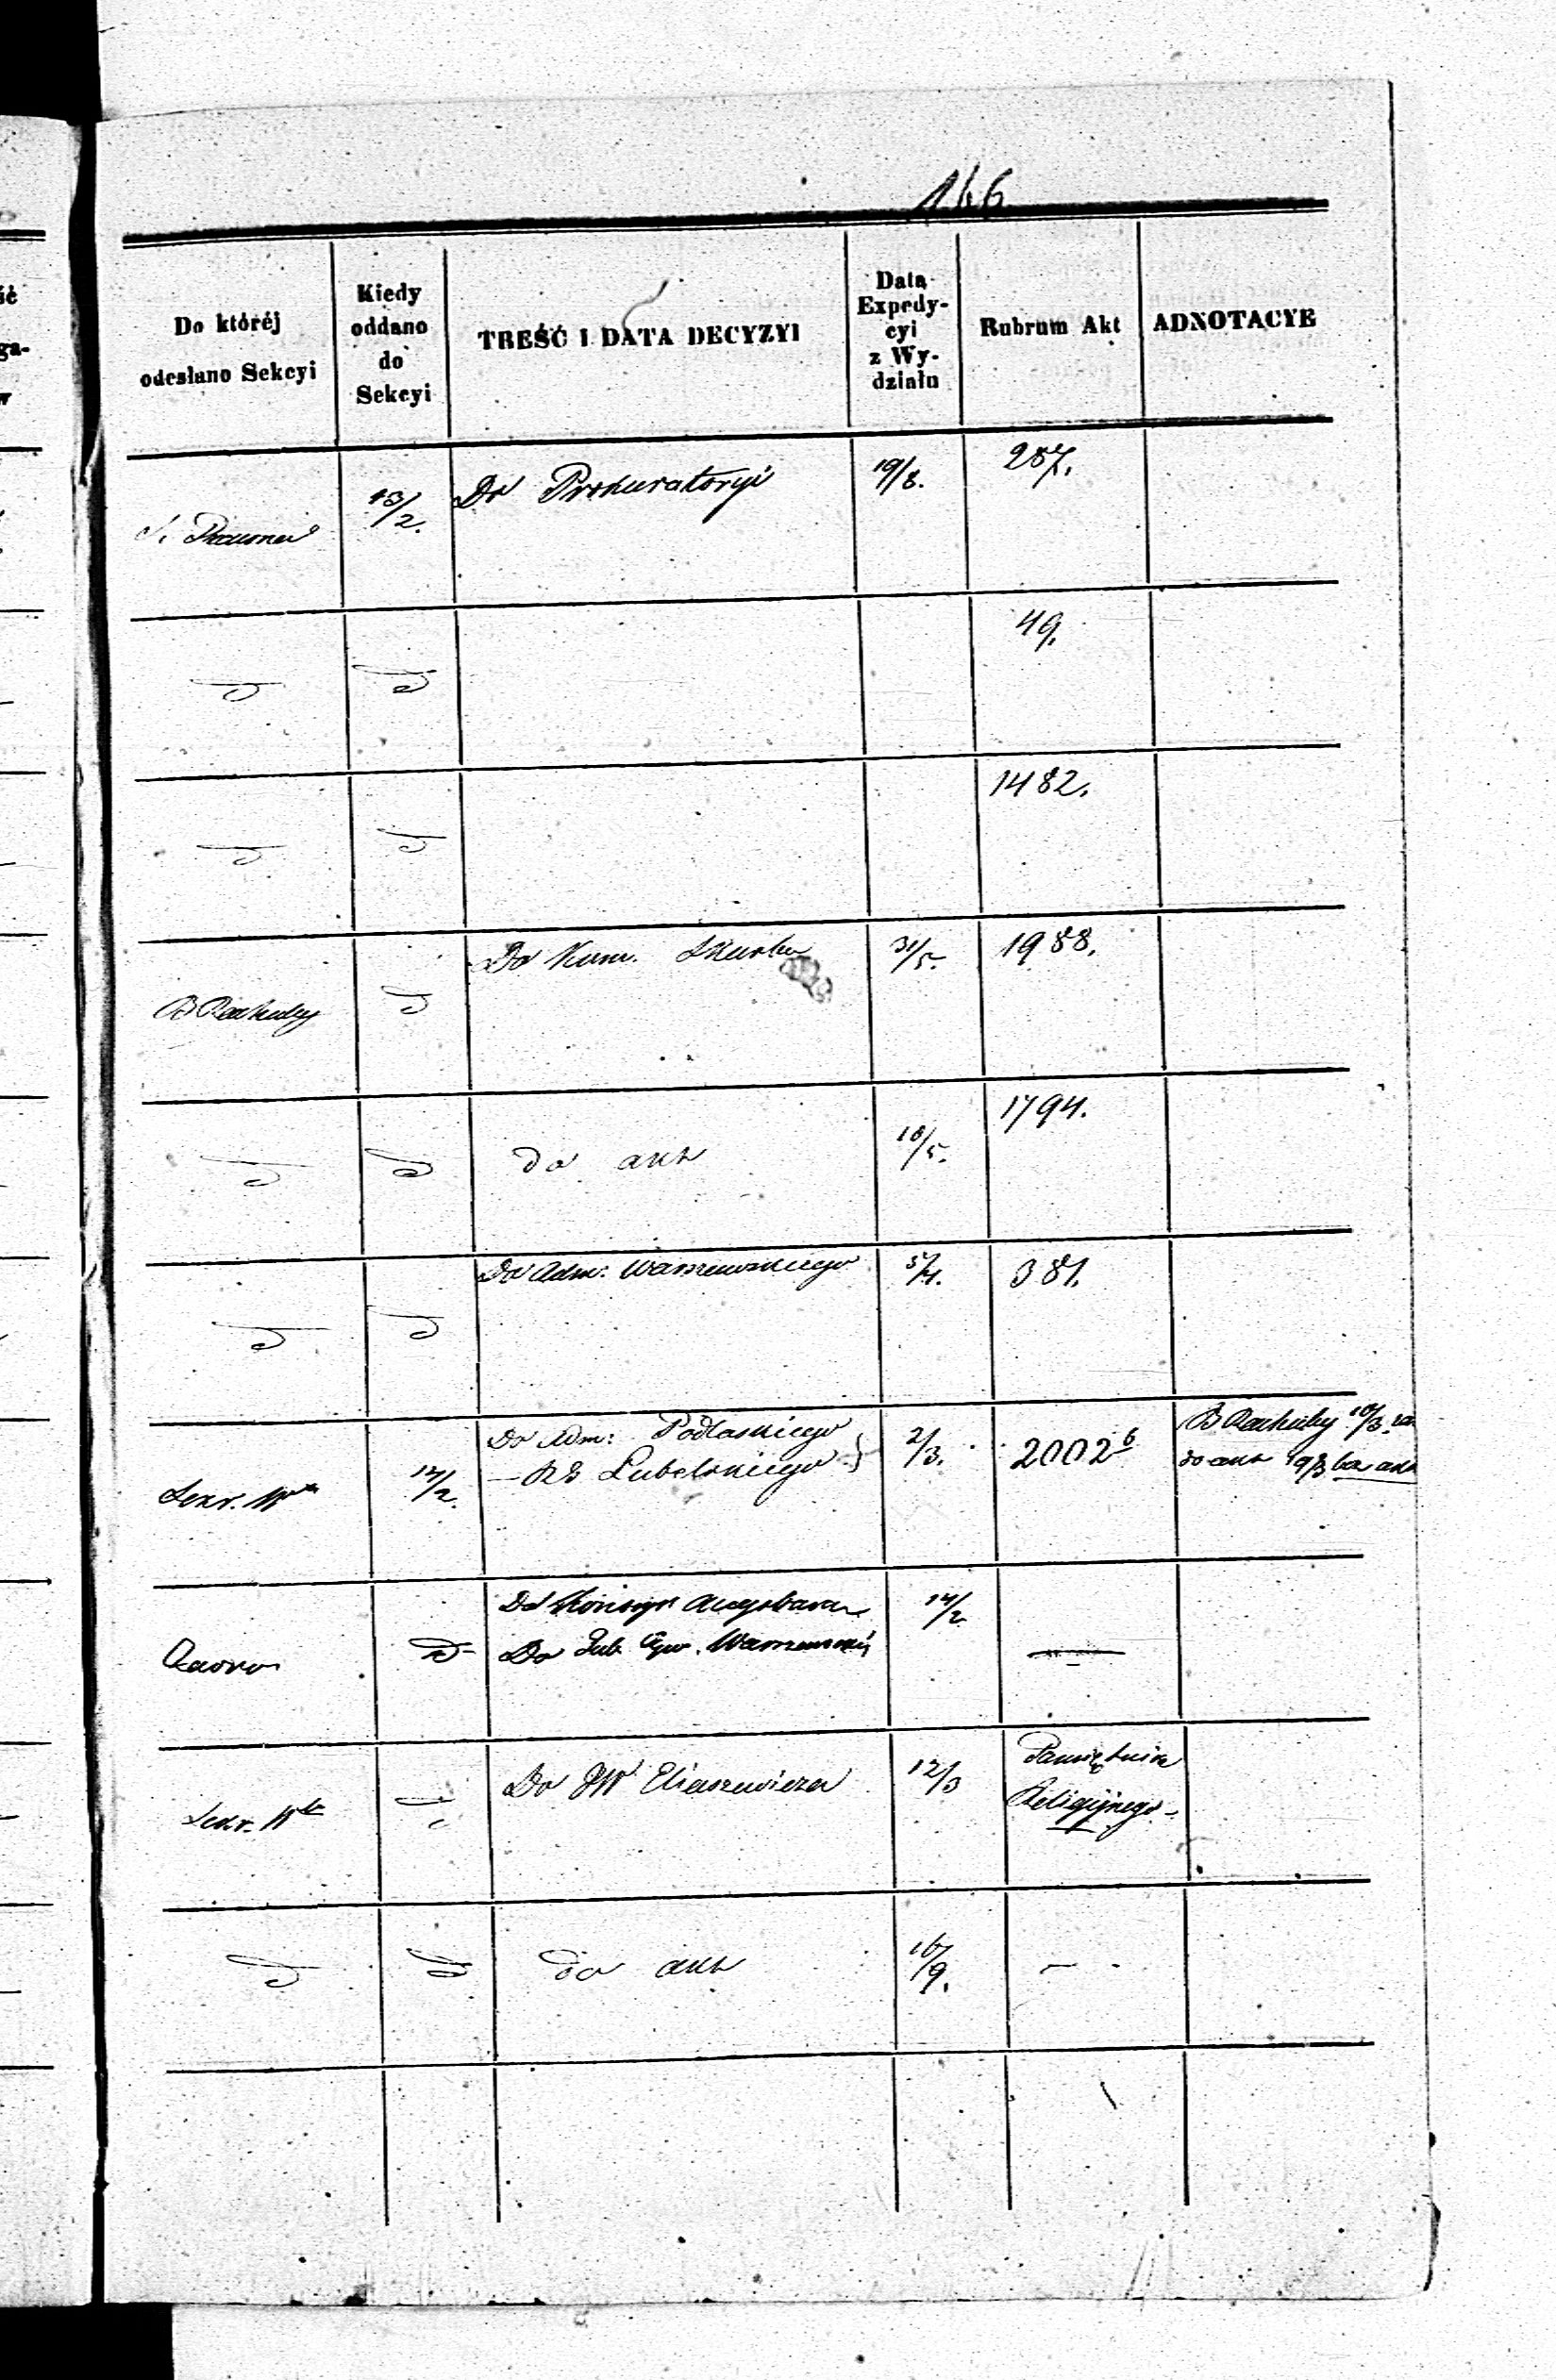 146
Do któréj
odesłano Sekcyi
Kiedy
oddano
do
Sekcyi
TREŚĆ I DATA DECYZYI
Data
Expedy-
cyi
z Wy-
działu
Rubrum Akt
ADNOTACYE
13/2.
Do Prokuratoryi
19/8.
287.
49.
1482.
B Rachuby
Do Kom. Skarbu
31/5.
1988.
do akt
18/5.
1794.
Do Adm: Warszewskiego
5/4.
381.
Sekr. Wła
14/2.
Do Adm: Podlaskiego
— Lubelskiego }
2/3.
2002 6
B Rachuby 10/3
do akt 19/3 bez akt
Do Konsys Augsbur
Do Gub Cyw. Warszawski
14/2
—
Sekr. Wła
Do JW Eliaszewicza
12/3
Pamiętnika
Religijnego
do akt
16/9.
—